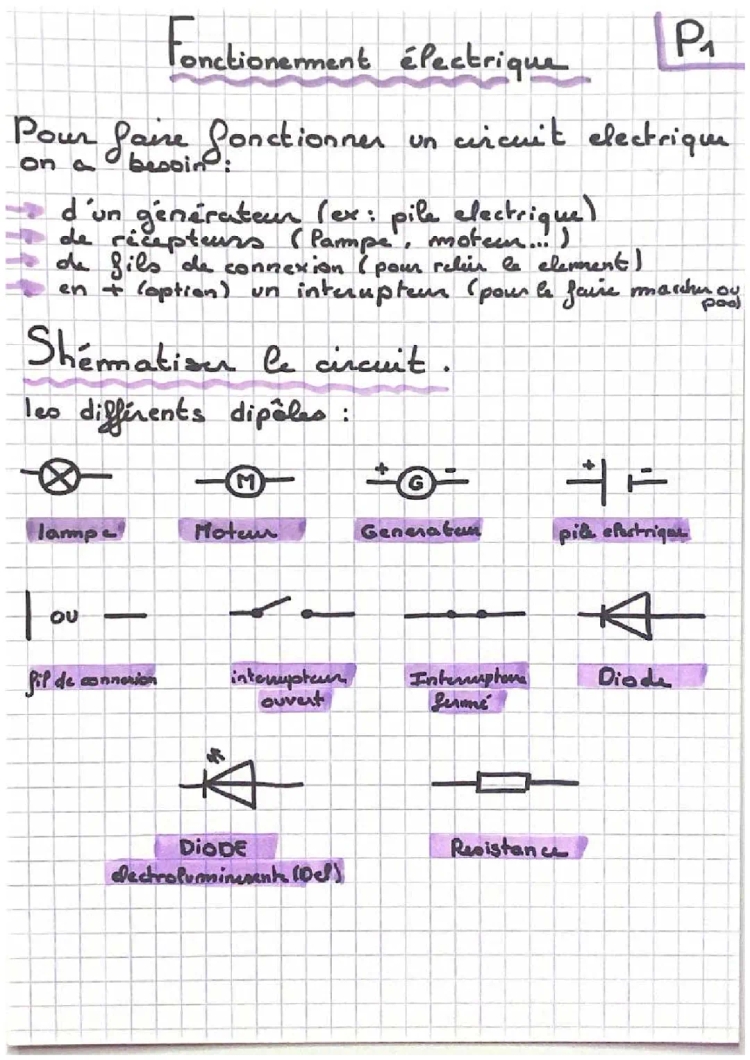 Fonctionement électrique
P1
Pour faire fonctionner un circuit electrique
on a besoin :
d'un générateur (ex : pile electrique)
de récepteurs (lampe, moteur...)
de fils de connexion (pour relier le element)
en + (option) un interupteur (pour le faire marcher ou
pas)
Shématiser le circuit.
les différents dipôles :
M
+ G -
+ -
lampe Moteur Generateur pile electrique
OU
fil de connexion interrupteur Interrupteur Diode
ouvert fermé
DiODE Resistance
electroluminescente (Del)